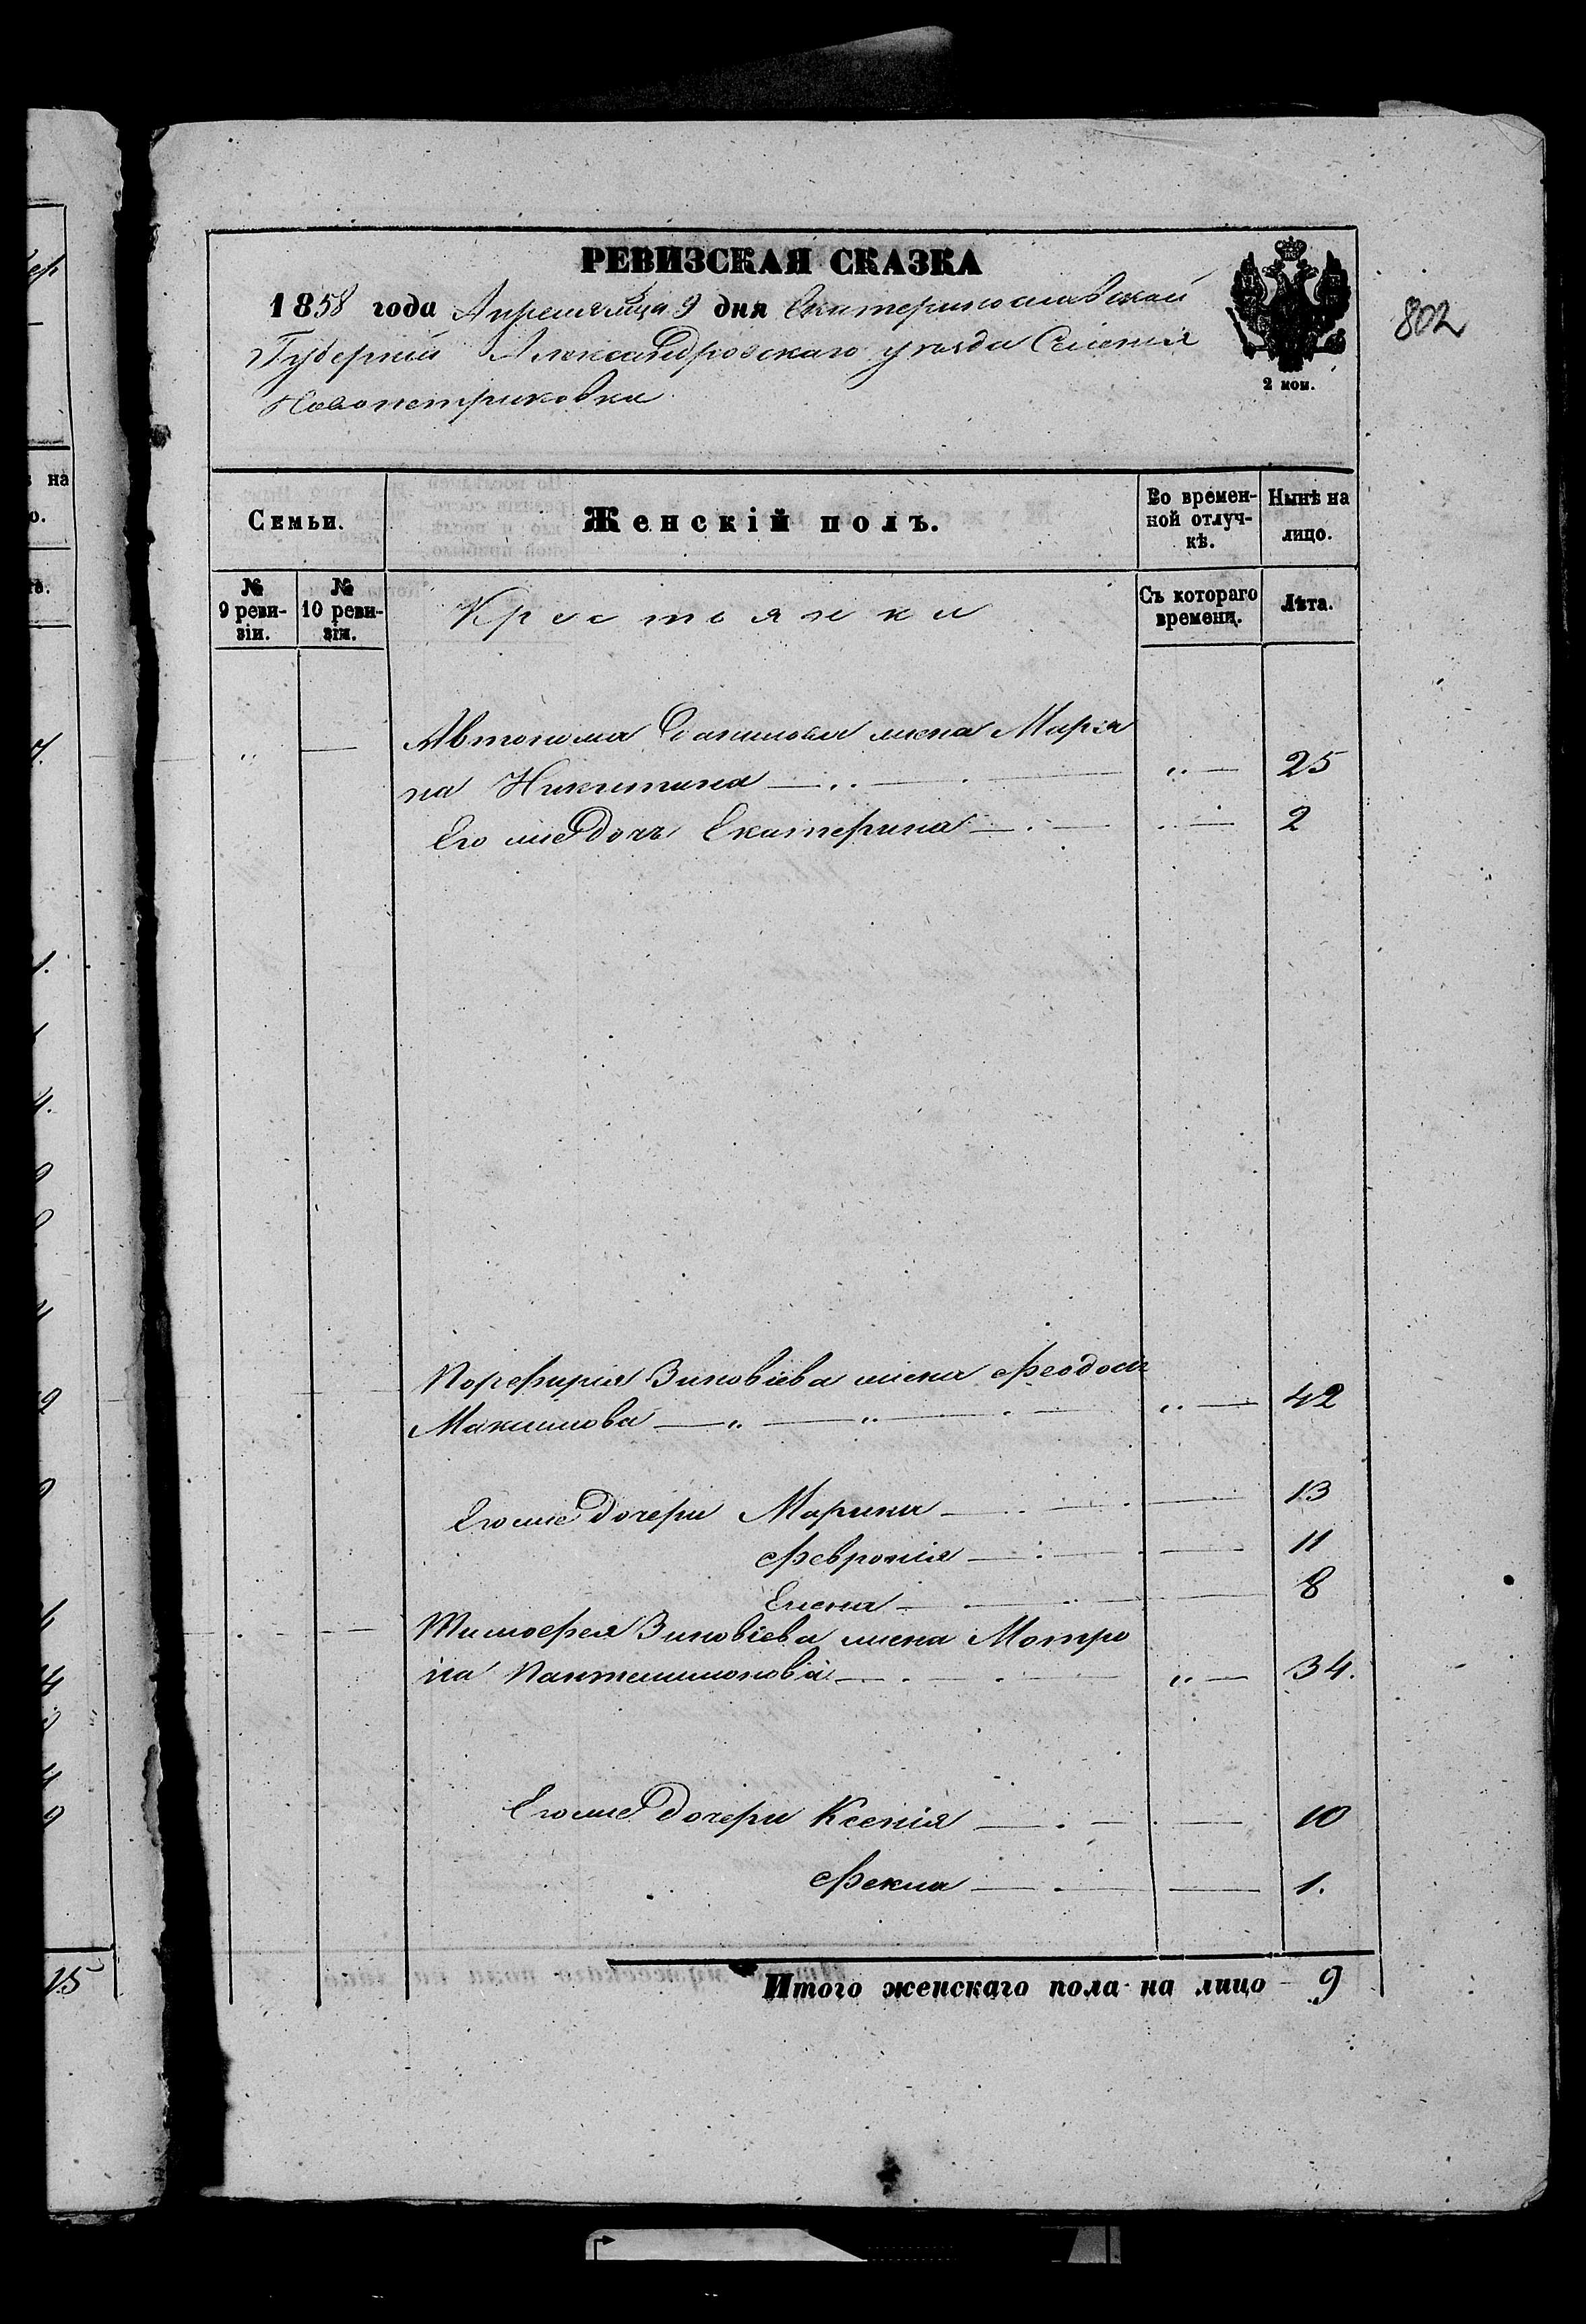 802
РЕВИЗСКАЯ СКАЗКА
1858 года Апреля мца 9 дня Екатеринославской
Губерніи Александровскаго уѣзда Селенія
Новопетриковка
2 коп.
Семьи.
Женскій полъ.
Во времен-
ной отлуч-
кѣ.
Нынѣ на
лицо.
№
9 реви-
зіи.
№
10 реви-
зіи.
Крестьянки
Съ котораго
времени.
Лѣта.
Автонома Данилова жена Марія
на Никитина 25
Его же дочь Екатерина 2
Порфирія Зиновіева жена Феодосія
Максимова 42
Его же дочери Марина 13
Февронія 11
Елена 8
Тимофея Зиновіева жена Мотро
на Пантелимонова 34.
Его же дочери Ксенія 10
Фекла 1.
Итого женскаго пола на лицо 9
на
о.
15